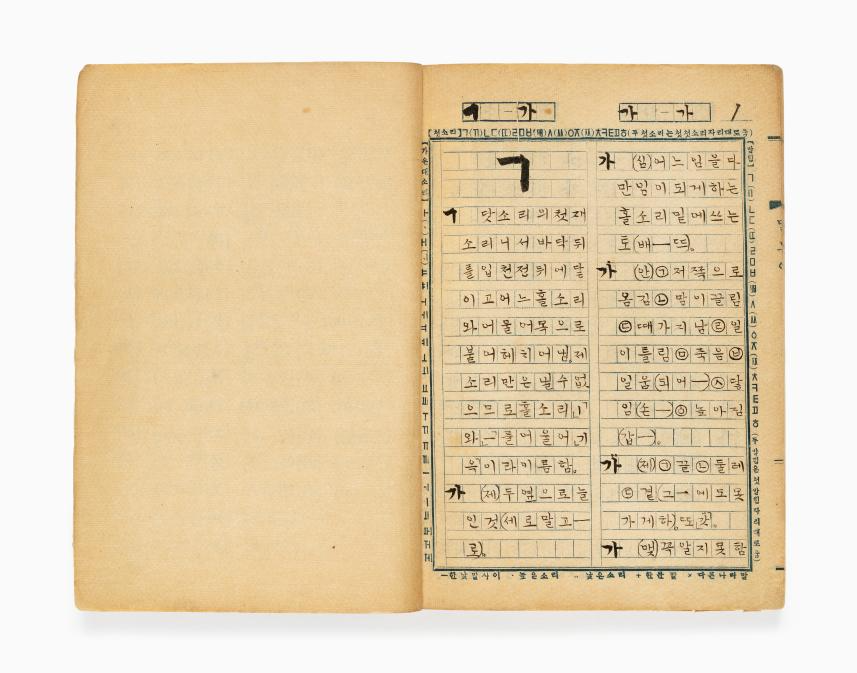 ㄱ — 가
가 — 가
1
[첫소리] ㄱ(ㄲ)ㄴㄷ(ㄸ)ㄹㅁㅂ(ㅃ)ㅅ(ㅆ)ㅇㅈ(ㅉ)ㅊㅋㅌㅍㅎ(두첫소리는첫소리자리대로둠)
ㄱ
ㄱ 닷소리의첫재
소리니서바닥뒤
를입천전뒤에달
이고어느홀소리
와어물어목으로
불어헤치어냄. 제
소리만은낼수없
으므로홀소리「ㅣ」
와「ㅡ」를어울어「기
윽」이라이름함.
가 (제)두옆으로늘
인것(세로말고—
로).
가 (심)어느임을다
만임이되게하는
홀소리밑에쓰는
토(배—뜨).
가 (안)㉠저쪽으로
옴김㉡맘이끌림
㉢때가지남㉣일
이틀림㉤죽음㉥
일움(되어—)㉦닿
임(손—)㉧높아짐
(갑—).
가 (제)㉠끝㉡둘레
㉢곁(그—에도못
가게하). 또「갓」.
가 (맺)꼭알지못함
—한낱말사이 ·높은소리 ..낮은소리 +한문말 ×다른나라말